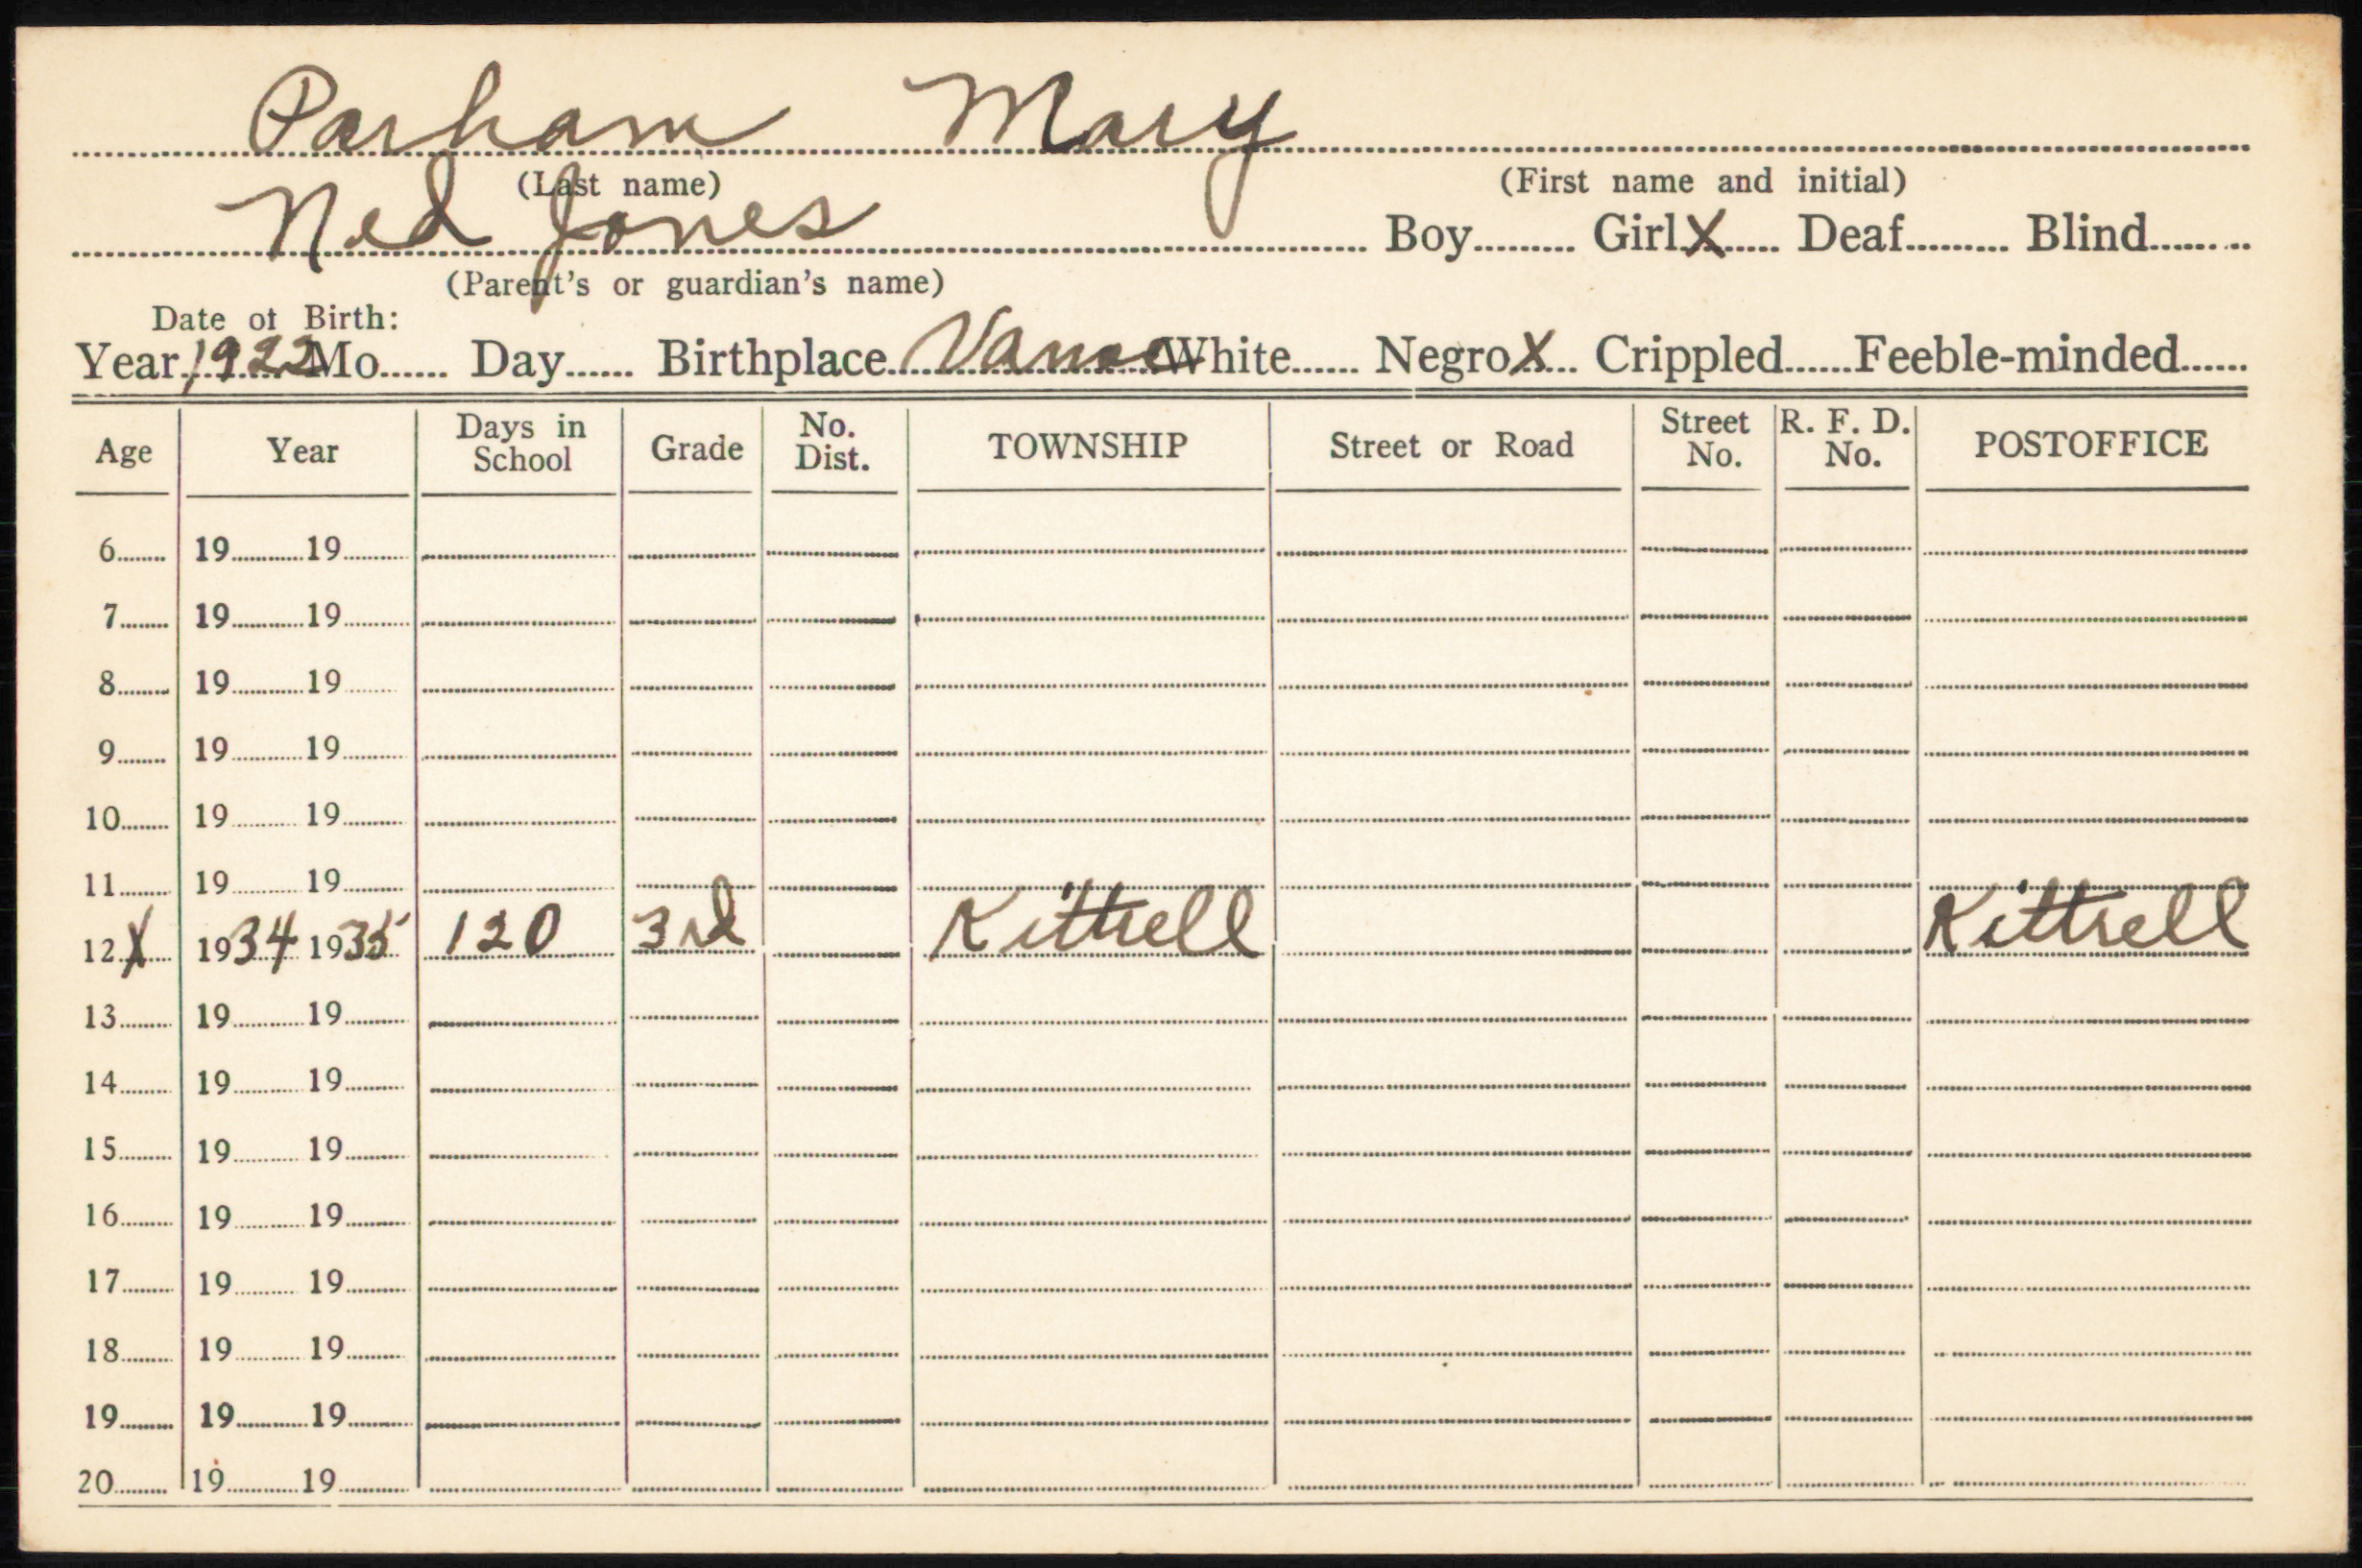 Parham Mary
(Last name) (First name and initial)
Ned Jones Boy......... Girl X...... Deaf......... Blind.........
(Parent's or guardian's name)
Date of Birth:
Year 1922 Mo...... Day...... Birthplace Vance White...... Negro X... Crippled......Feeble-minded......
Age Year Days in School Grade No. Dist. TOWNSHIP Street or Road Street No. R. F. D. No. POSTOFFICE
6........ 19............19...........
7........ 19............19...........
8......... 19............19.........
9........ 19............19...........
10........ 19........... 19..........
11......... 19........... 19..........
12 X 1934 1935 120 3rd Kittrell Kittrell
13......... 19............19...........
14......... 19............19..........
15......... 19........... 19...........
16......... 19............19...........
17......... 19........... 19...........
18......... 19........... 19..........
19......... 19............19...........
20......... 19............19............